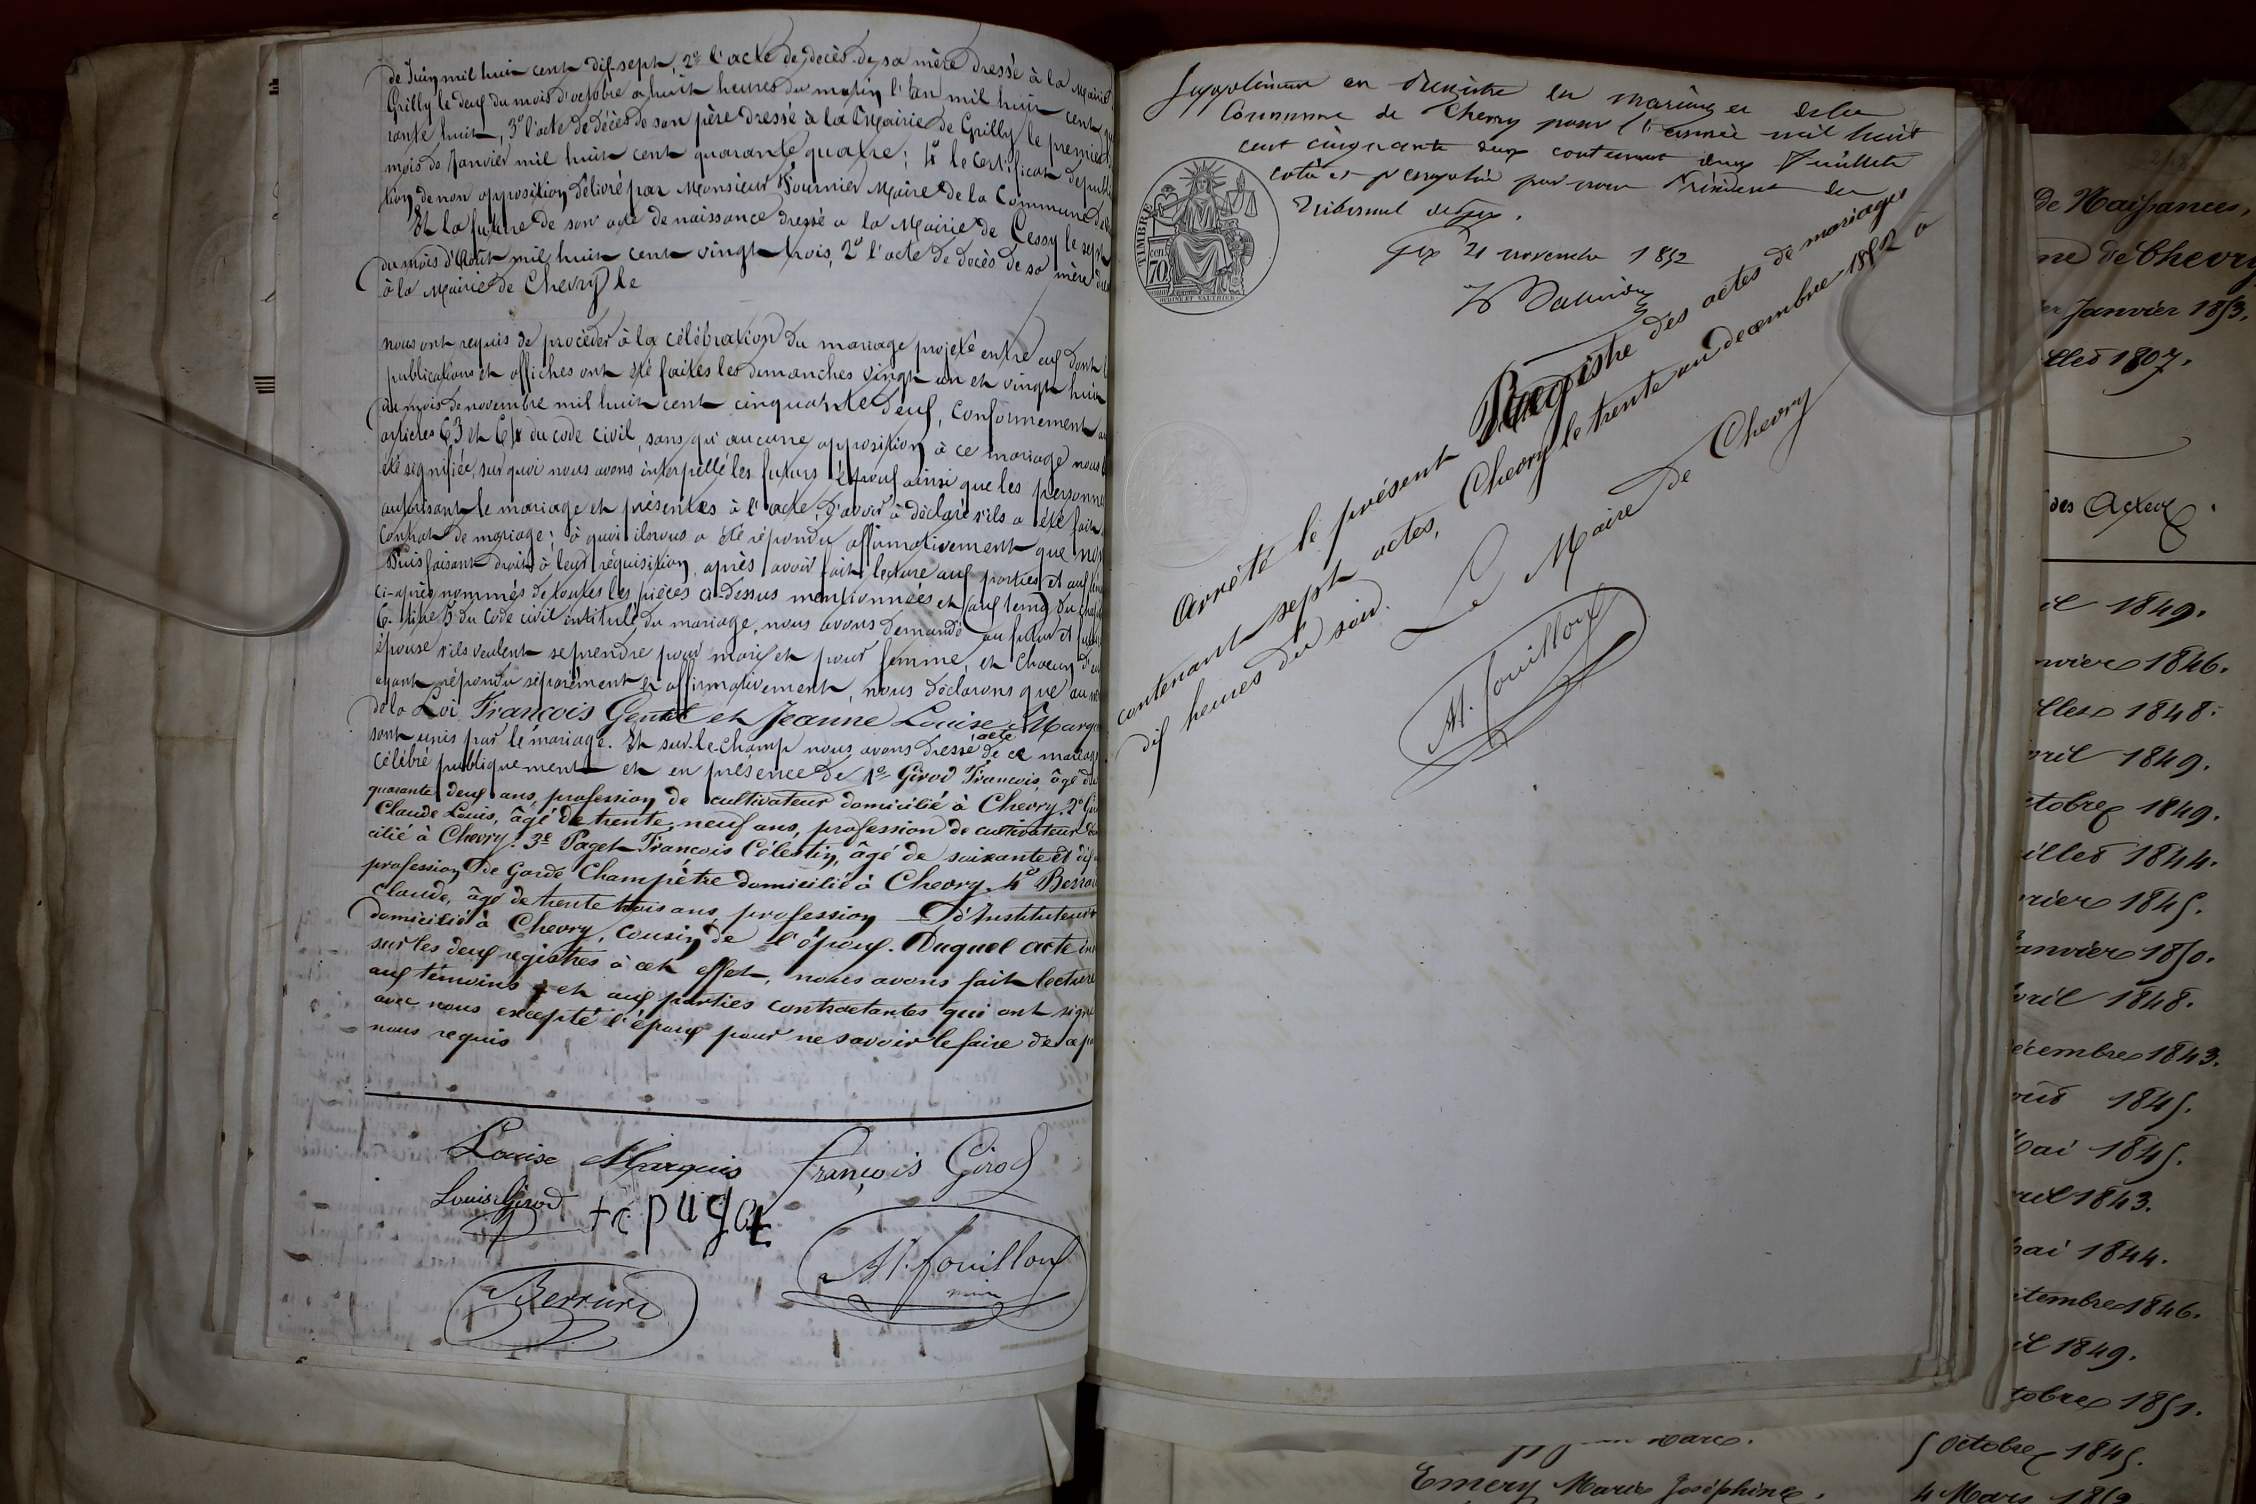 de Juin mil huit cent dix-sept, 2º l'acte de décès de sa mère dressé à la Mairie
Grilly le deux du mois d'octobre à huit heures du matin l'an mil huit cent
rante huit, 3º l'acte de décès de son père dressé à la Mairie de Grilly le premier
mois de Janvier mil huit cent quarante quatre; 4º le certificat de publi
tion de non opposition délivré par Monsieur Fournier Maire de la Commune de
Et la future de son acte de naissance dressé a la Mairie de Cessy le sept
du mois d'Août mil huit cent vingt trois, 2º l'acte de décès de sa mère
à la Mairie de Chevry le
nous ont requis de procéder à la célébration du mariage projeté entre eux dont
publications et affiches ont été faites les dimanches vingt un et vingt huit
du mois de novembre mil huit cent cinquante deux, conformément
articles 63 et 64 du code civil, sans qu'aucune opposition à ce mariage nous
été signifiée, sur quoi nous avons interpellé les futurs époux ainsi que les personnes
autorisant le mariage et présentes à l'acte, d'avoir à déclaré s'ils a été fait
Contrat de mariage; à quoi il nous a été répondu affirmativement que non
Puis faisant droit à leur réquisition, après avoir fait lecture aux parties et aux
ci-après nommés de toutes les pièces ci-dessus mentionnées et du
6. titre 5 du Code civil intitulé du mariage, nous avons demandé au futur et
épouse s'ils veulent se prendre pour mari et pour femme, et chacun d'eux
ayant répondu séparément et affirmativement, nous déclarons que au
de la Loi François Gentil et Jeanne Louise Marq
sont unis par le mariage. Et sur-le-champ nous avons dressé acte de ce mariage
célébré publiquement et en présence de 1º Girod François, âgé de
quarante deux ans, profession de cultivateur domicilié à Chevry. 2º
Claude Louis, âgé de trente neuf ans, profession de cultivateur
cilié à Chevry. 3º Paget François Célestin, âgé de soixante et dix
profession de Garde Champêtre domicilié à Chevry. 4º
Claude, âgé de trente trois ans, profession d'Instituteur
domicilié à Chevry, Cousin de l'époux. Duquel acte
sur les deux registres à cet effet, nous avons fait lecture
aux témoins et aux parties contractantes qui ont signé
avec nous excepté l'époux pour ne savoir le faire de ce
nous requis
Louise Marquis François Girod
Louis Girod
Supplément au Registre des mariages de la
Commune de Chevry pour l'année mil huit
cent cinquante deux contenant deux feuillets
coté et paraphé par nous Président du
Tribunal de Gex.
Gex 21 novembre 1852
TIMBRE
70
Arrêté le présent Registre des actes de mariages
contenant sept actes, Chevry le trente un décembre 1852 à
dix heures du soir.
Le Maire de Chevry
de Naissances,
ne de Chevry
er Janvier 1853.
1807.
des Actes.
1849.
nvier 1846.
1848.
vril 1849.
ctobre 1849.
illet 1844.
vrier 1845.
anvier 1850.
vril 1848.
écembre 1843.
1845.
Mai 1845.
ril 1843.
Mai 1844.
tembre 1846.
il 1849.
tobre 1851.
5 Octobre 1845.
Emery Marie Joséphine. 4 Mars